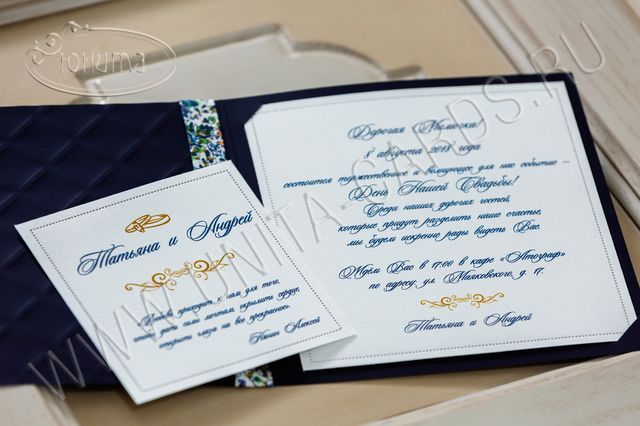 Юнита
WWW.UNITA-CARDS.RU
Татьяна и Андрей
«Любовь приходит к нам для того,
чтобы дать силы мечтам, окрылить сердце,
открыть глаза на все прекрасное».
Алексей
Дорогая Мамочка!
8 августа 2018 года
состоится торжественное и волнующее для нас событие –
День Нашей Свадьбы!
Среди наших дорогих гостей,
которые придут разделить наше счастье,
мы будем искренне рады видеть Вас.
Ждем Вас в 17:00 в кафе «Автограф»
по адресу: ул. Маяковского, д. 17.
Татьяна и Андрей